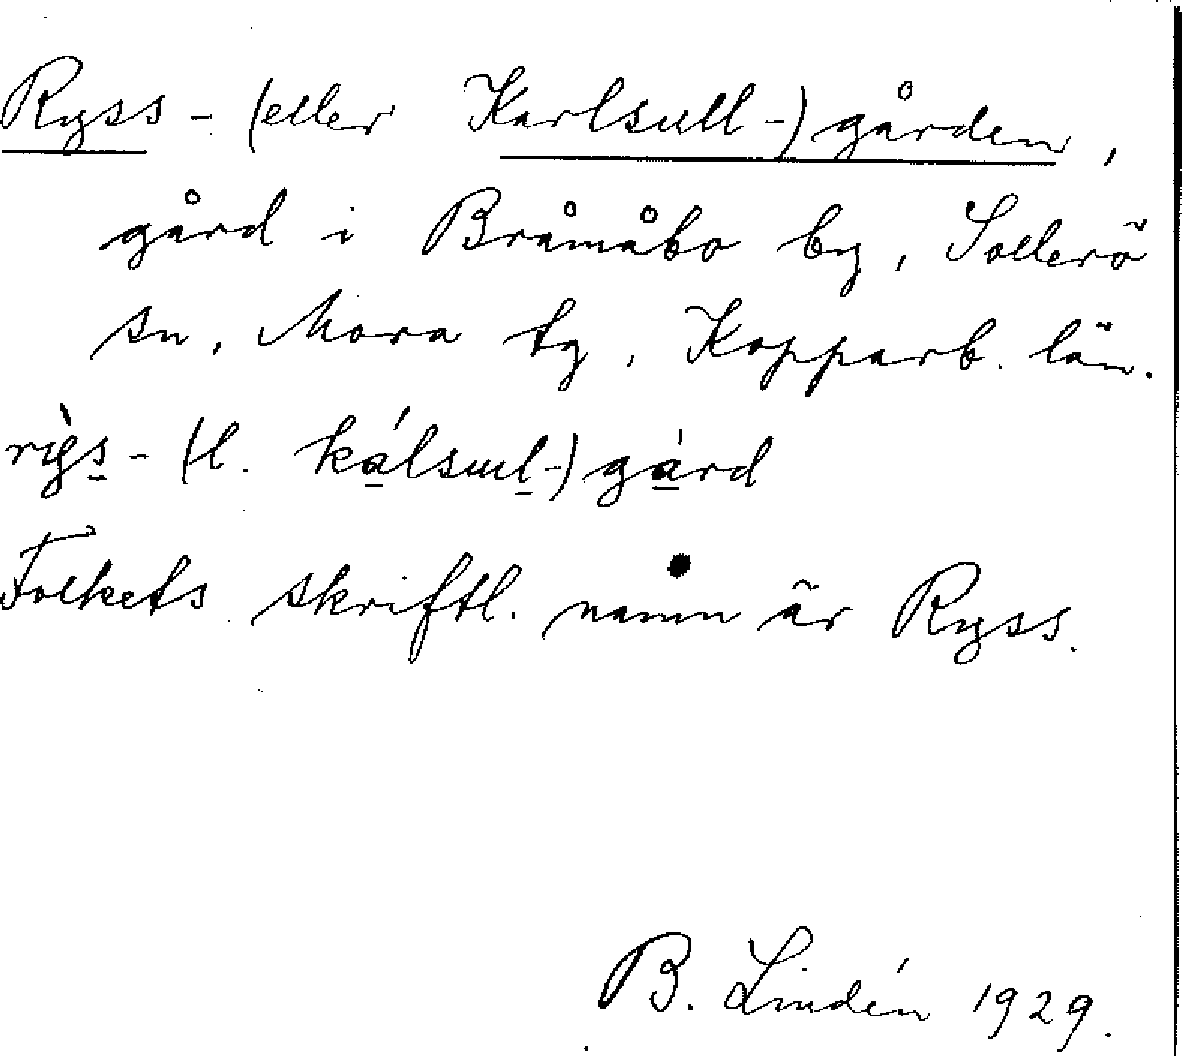 Ryss- (eller Karlsull-) gården,
gård i Bråmåbo by, Sollerö
sn, Mora tg, Kopparb. län.
rỳs- (l. kálsuul-) gárd
Folkets skriftl. namn är Ryss.
B. Lindén 1929.